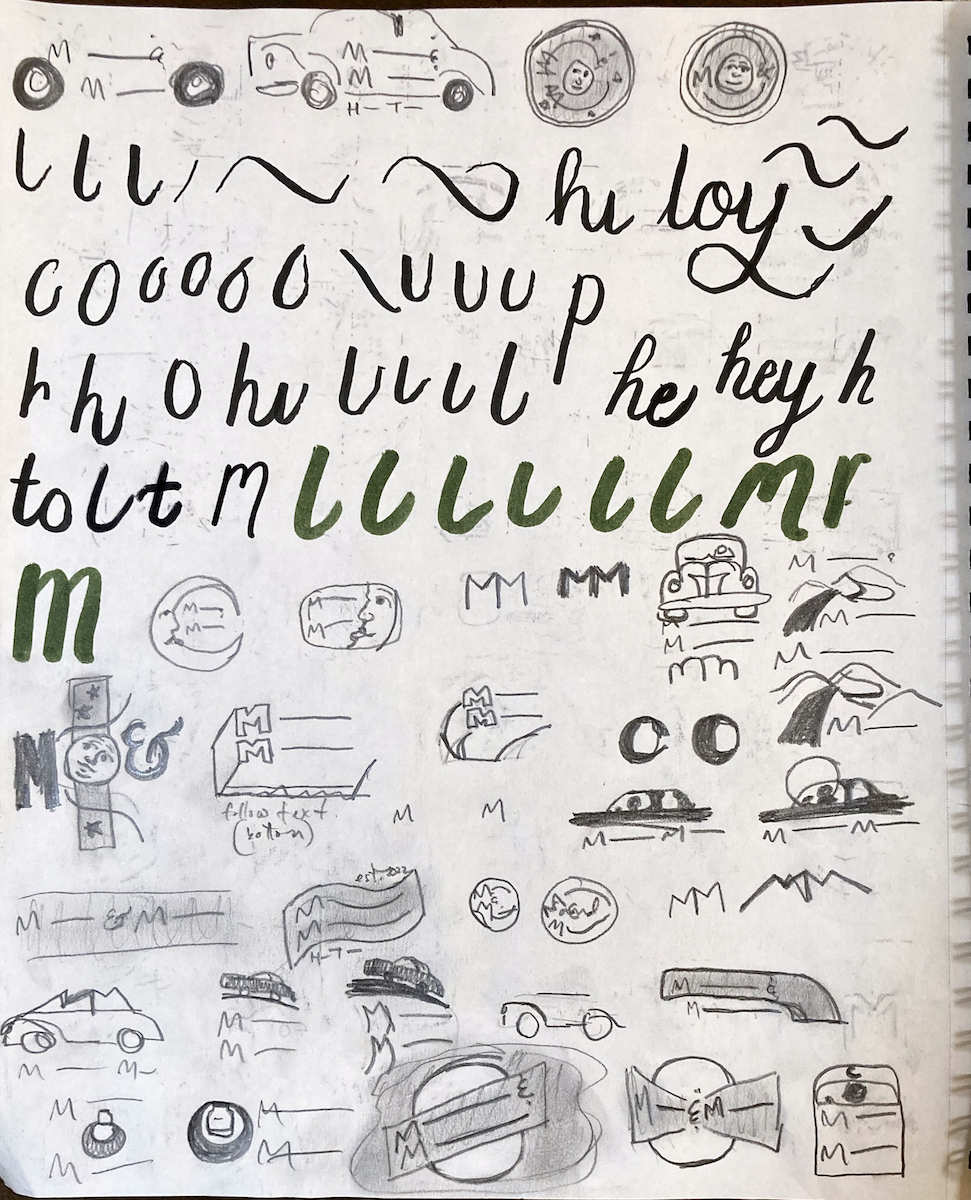 M — &
M —
M — &
M —
H - T -
M &
l l l
hi loy
c o o o o o o \ u u u p
r h o hi l l l l he hey h
to l t m l l l l l l m r
m
M —
M —
M —
M —
MM MM
M —
M —
mm
M —
M —
M —
M —
M &
M —
M —
M —
M —
follow text
(bottom)
M M
M — M —
M — M —
M — & M —
est. 2022
M —
M —
H - T -
M &
M
MM
M — M —
M —
M —
M —
M —
M — &
M —
M —
M —
M —
M —
M — &
M —
M — & M —
M —
M —